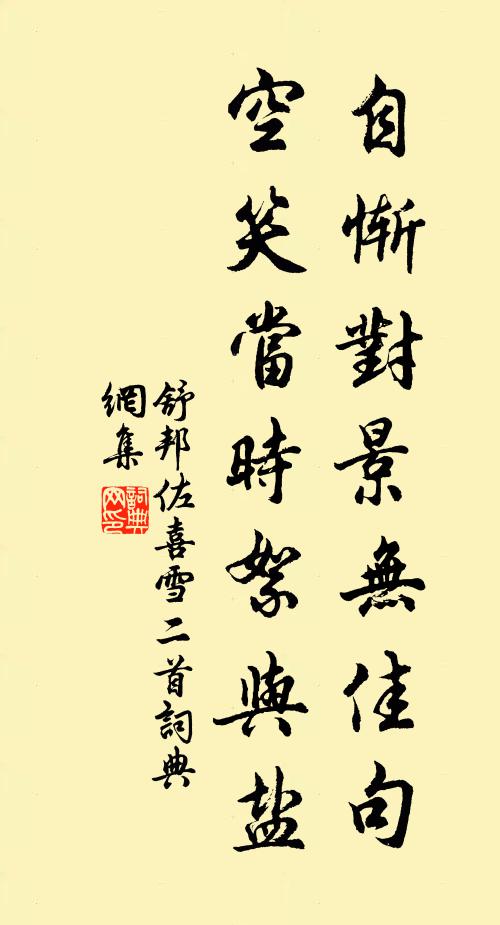 自慚對景無佳句
空笑當時絮與盐
舒邦佐喜雪二首詞典
網集
詞典
网印